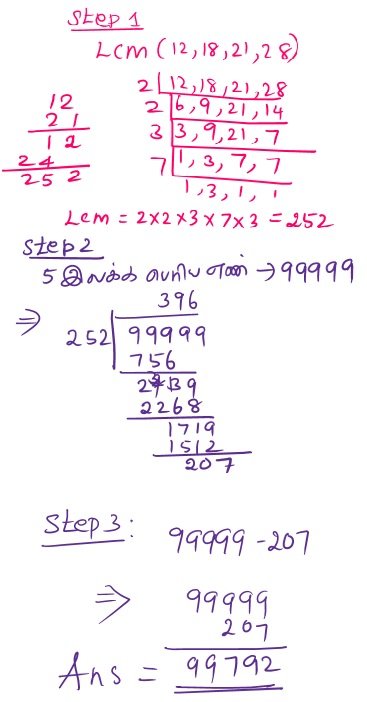 Step 1
Lcm (12,18,21,28)
2 12,18,21,28
2 6,9,21,14
3 3,9,21,7
7 1,3,7,7
1,3,1,1
12
21
12
24
252
Lcm = 2x2x3x7x3 = 252
Step 2
5 இலக்க பெரிய எண் → 99999
⇒
396
252 99999
756
2439
2268
1719
1512
207
Step 3:
99999 - 207
⇒ 99999
207
Ans = 99792